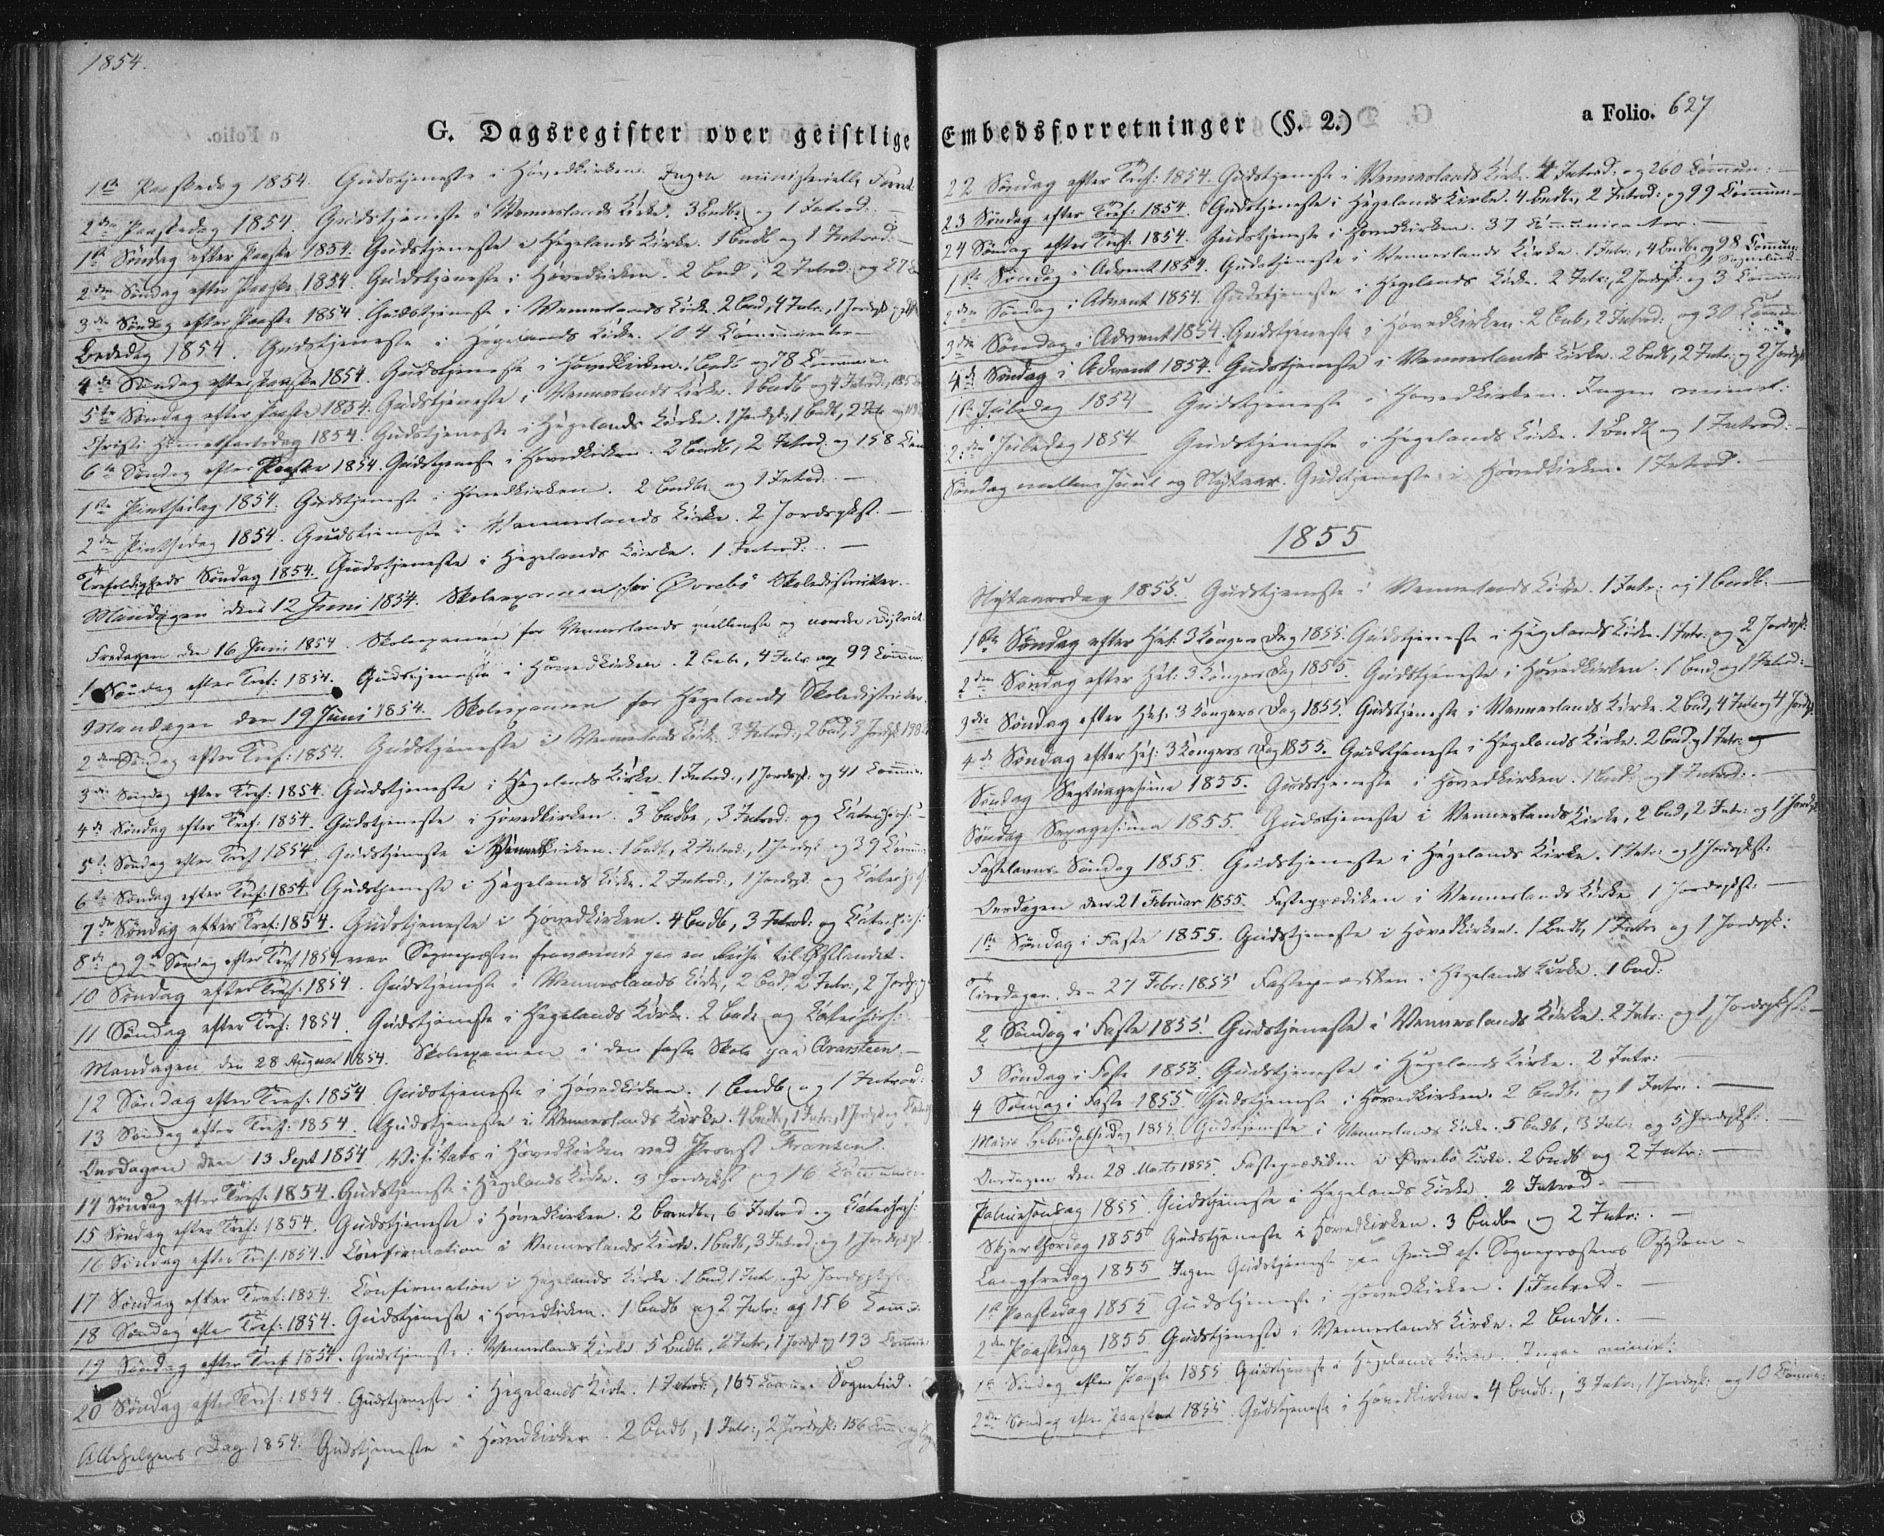 1854.
G. Dagsregister over geistlige
1ste Paaskedag 1854. Gudstjeneste i Hovedkirken. Ingen ministerielle Forret
2den Paaskedag 1854. Gudstjeneste i Vennerslands Kirke. 3 Budb. og 1 Introd.
1ste Søndag efter Paaske 1854. Gudstjeneste i Hegelands Kirke. 1 budb og 1 Introd. —
2den Søndag efter Paaske 1854. Gudstjeneste i Hovedkirken. 2 bud, 2 Introd: og 27
3die Søndag efter Paaske 1854. Gudstjeneste i Vennerslands Kirke. 2 bud, 4 Intr., 1 Jordspk.
Bededag 1854. Gudstjeneste i Hegelands Kirke. 104 Communicanter
4de Søndag efter Paaske 1854. Gudstjeneste i Hovedkirken. 1 budb og 78 Commun
5te Søndag efter Paaske 1854. Gudstjeneste i Vennerslands Kirke. 1 budb og 4 Introd:
Christi Himmelfartsdag 1854. Gudstjeneste i Hegelands Kirke. 1 Jordspk, 1 budb, 2 Intr
6te Søndag efter Paaske 1854. Gudstjeneste i Hovedkirken. 2 budb, 2 Introd. og 158 Com
1ste Pintsedag 1854. Gudstjeneste i Hovedkirken. 2 budb og 1 Introd: —
2den Pintsedag 1854. Gudstjeneste i Vennerslands Kirke. 2 Jordspkst. —
Trefoldigheds Søndag 1854. Gudstjeneste i Hegelands Kirke. 1 Introd: —
Mandagen den 12 Juni 1854. Skoleexamen for Øvrebø Skoledistrikter.
Fredagen den 16 Juni 1854. Skoleexamen for Vennerslands mellemste og nordre District
1 Søndag efter Tref: 1854. Gudstjeneste i Hovedkirken. 2 budb, 4 Intr og 99 Commun
Mandagen den 19 Juni 1854. Skoleexamen for Hegelands Skoledistricter
2den Søndag efter Tref: 1854. Gudstjeneste i Vennerslands Kirke 3 Introd:, 2 bud, 3 Jordspk
3die Søndag efter Tref: 1854. Gudstjeneste i Hegelands Kirke. 1 Introd:, 1 Jordspk. og 41 Commun.
4de Søndag efter Tref: 1854. Gudstjeneste i Hovedkirken. 3 budb, 3 Introd: og Catechis: —
5te Søndag efter Tref 1854. Gudstjeneste i Vennerslkirken. 1 budb, 2 Introd:, 1 Jordspk og 39 Commun
6te Søndag efter Tref: 1854. Gudstjeneste i Hegelands Kirke. 2 Introd:, 1 Jordspk. og Catechis:
7de Søndag efter Tref: 1854. Gudstjeneste i Hovedkirken. 4 budb, 3 Introd: og Catechis:
8de og 9de Søndag efter Tref 1854 var Sognepræsten fraværende paa en Reise til Østlandet.
10 Søndag efter Tref: 1854. Gudstjeneste i Vennerslands Kirke, 2 bud, 2 Intr:, 2 Jordspk
11 Søndag efter Tref: 1854. Gudstjeneste i Hegelands Kirke. 2 budb og Catechis:
Mandagen den 28 August 1854. Skoleexamen i den faste Skole paa Graasteen. —
12 Søndag efter Tref: 1854. Gudstjeneste i Hovedkirken. 1 budb og 1 Introd:
13 Søndag efter Tref: 1854. Gudstjeneste i Vennerslands Kirke. 4 budb, 1 Intr:, 1 Jordspk og
Onsdagen den 13 Sept 1854 Visitats i Hovedkirken ved Provst Frantzen
14 Søndag efter Tref 1854. Gudstjeneste i Hegelands Kirke. 3 Jordspkst og 16 Commun
15 Søndag efter Tref: 1854. Gudstjeneste i Hovedkirken. 2 budb, 6 Introd og Catechis:
16 Søndag efter Tref: 1854. Confirmation i Vennerslands Kirke. 1 budb, 3 Introd. og 1 Jordspkst.
17 Søndag efter Tref: 1854. Confirmation i Hegelands Kirke. 1 bud 1 Intr og Jordspkst
18 Søndag efter Tref: 1854. Gudstjeneste i Hovedkirken. 1 budb og 2 Intr: og 156 Comm:
19 Søndag efter Tref 1854. Gudstjeneste i Vennerslands Kirke. 5 Budb, 2 Intr, 1 Jordspk og 193 Commun
20 Søndag efter Tref: 1854. Gudstjeneste i Hegelands Kirke. 1 Introd:, 165 Commun Sognebud.
Allehelgens Dag 1854. Gudstjeneste i Hovedkirken. 2 budb, 1 Intr:, 2 Jordspk: 156 Comm: og
Embedsforretninger (§. 2.)
a Folio. 627
22 Søndag efter Tref: 1854. Gudstjeneste i Vennerslands Kirke. 4 Introd: og 260 Commun: —
23 Søndag efter Tref: 1854. Gudstjeneste i Hegelands Kirke. 4 budb, 2 Introd: og 99 Commun —
24 Søndag efter Tref: 1854. Gudstjeneste i Hovedkirken. 37 Communicanter.
1ste Søndag i Advent 1854. Gudstjeneste i Vennerslands Kirke. 1 Intr:, 4 budb og 98 Commun:
2den Søndag i Advent 1854. Gudstjeneste i Hegelands Kirke. 2 Intr:, 2 Jordspk: og 3 Commun
3die Søndag i Advent 1854. Gudstjeneste i Hovedkirken. 2 budb, 2 Introd: og 30 Commun
4de Søndag i Advent 1854. Gudstjeneste i Vennerslands Kirke. 2 budb, 2 Intr: og 2 Jordspk
1ste Juledag 1854 Gudstjeneste i Hovedkirken. Ingen minist:
2den Juledag 1854 Gudstjeneste i Hegelands Kirke. 1 budb og 1 Introd: —
Søndag mellem Juul og Nytaar. Gudstjeneste i Hovedkirken. 1 Introd. —
1855
Nytaarsdag 1855. Gudstjeneste i Vennerslands Kirke. 1 Intr: og 1 budb. —
1ste Søndag efter Hel: 3 Konger Dag 1855. Gudstjeneste i Hegelands Kirke. 1 Intr. og 2 Jordspk.
2den Søndag efter Hel: 3 Kongers Dag 1855. Gudstjeneste i Hovedkirken. 1 bud og 1 Introd: —
3die Søndag efter Hel: 3 Kongers Dag 1855. Gudstjeneste i Vennerslands Kirke. 2 bud, 4 Intr og 4 Jordsp.
4de Søndag efter Hel: 3 Kongers Dag 1855. Gudstjeneste i Hegelands Kirke. 2 bud og 1 Intr: —
Søndag Septuagesima 1855. Gudstjeneste i Hovedkirken. 1 bud og 1 Introd: —
Søndag Sexagesima 1855. Gudstjeneste i Vennerslands Kirke, 2 bud, 2 Intr: og 1 Jordspk
Fastelavns-Søndag 1855. Gudstjeneste i Hegelands Kirke. 1 Intr: og 1 Jordspkst:
Onsdagen den 21 Februar 1855. Fasteprædiken i Vennerslands Kirke 1 Jordspkst: —
1ste Søndag i Faste 1855. Gudstjeneste i Hovedkirken. 1 budb, 1 Intr og 1 Jordspk:
Tirsdagen den 27 Febr: 1855 Fasteprædiken i Hegelands Kirke. 1 bud:
2 Søndag i Faste 1855. Gudstjeneste i Vennerslands Kirke. 2 Intr: og 1 Jordspkst: —
3 Søndag i Faste 1855. Gudstjeneste i Hegelands Kirke. 2 Intr: —
4 Søndag i Faste 1855. Gudstjeneste i Hovedkirken. 2 budb. og 1 Intr: —
Mariæ Bebudelsesdag 1855. Gudstjeneste i Vennerslands Kirke. 5 budb, 3 Intr: og 5 Jordspkst: —
Onsdagen den 28 Marts 1855. Fasteprædiken i Øvrebø Kirke. 2 budb og 2 Intr: —
Palmesøndag 1855. Gudstjeneste i Hegelands Kirke. 2 Introd. —
Skjærthorsdag 1855 Gudstjeneste i Hovedkirken. 3 budb og 2 Intr: —
Langfredag 1855 Ingen Gudstjeneste paa Grund af Sognepræstens Sygdom —
1ste Paaskedag 1855 Gudstjeneste i Hovedkirken. 1 Introd. —
2den Paaskedag 1855 Gudstjeneste i Vennerslands Kirke. 2 budb. —
1ste Søndag efter Paaske 1855 Gudstjeneste i Hegelands Kirke. Ingen minist:
2den Søndag efter Paaske 1855. Gudstjeneste i Hovedkirken. 4 budb:, 3 Intr:, 1 Jordspk: og 10 Commun: